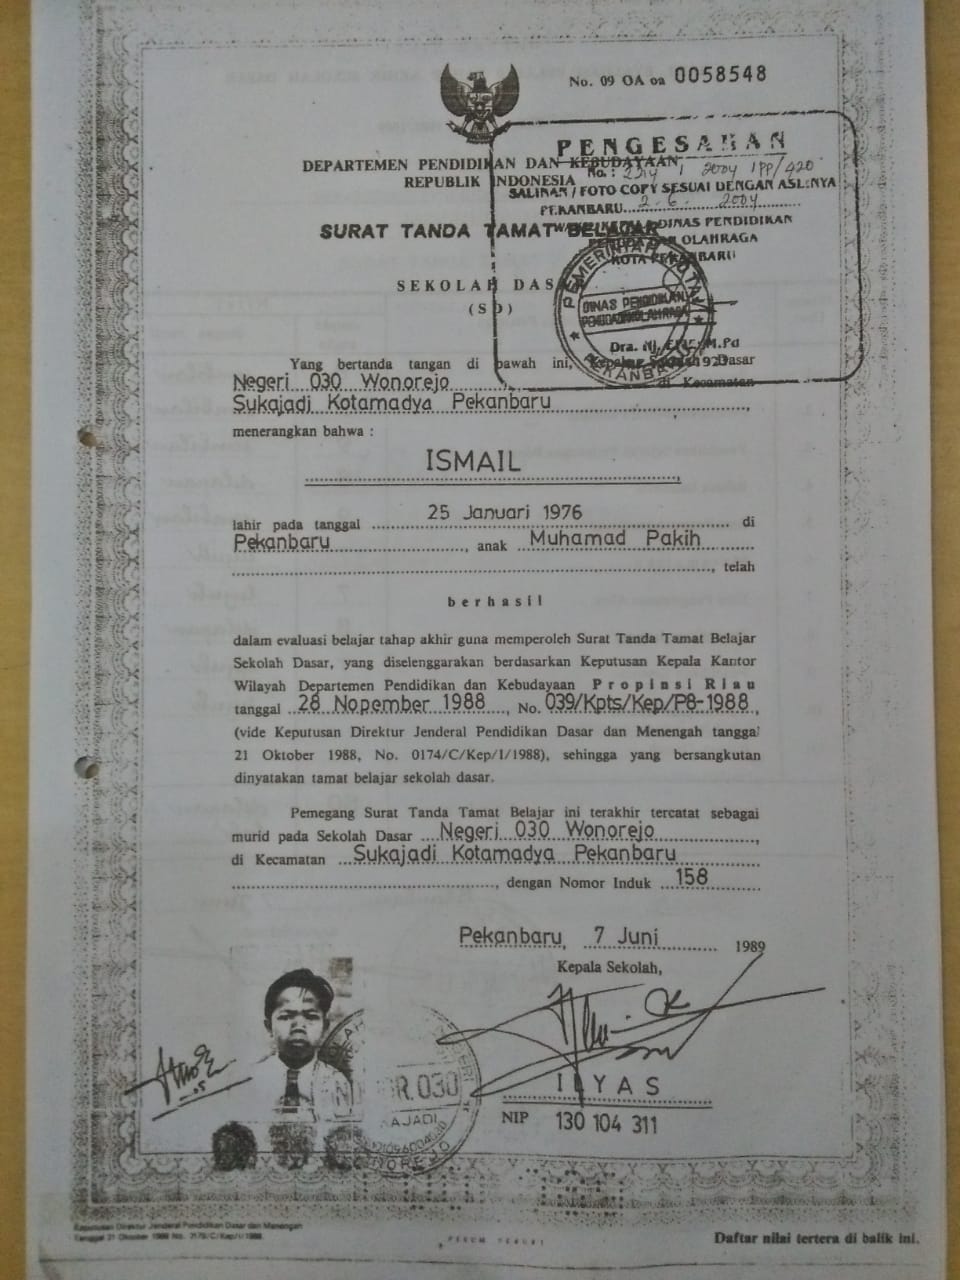 No. 09 OA oa 0058548
PENGESAHAN
DEPARTEMEN PENDIDIKAN DAN KEBUDAYAAN
No. : 2004
REPUBLIK INDONESIA
SALINAN / FOTO COPY SESUAI DENGAN ASLINYA
PEKANBARU 2-6. 2004
DINAS PENDIDIKAN
SURAT TANDA TAMAT BELAJAR
OLAHRAGA
KOTA PEKANBARU
SEKOLAH DASAR
(SD)
PEMERINTAH KOTA
DINAS PENDIDIKAN
PEKANBARU
Dra. Hj. M.Pd
Yang bertanda tangan di bawah ini, Kepala Sekolah Dasar
Negeri 030 Wonorejo di Kecamatan
Sukajadi Kotamadya Pekanbaru,
menerangkan bahwa :
ISMAIL
lahir pada tanggal 25 Januari 1976 di
Pekanbaru, anak Muhamad Pakih
, telah
berhasil
dalam evaluasi belajar tahap akhir guna memperoleh Surat Tanda Tamat Belajar
Sekolah Dasar, yang diselenggarakan berdasarkan Keputusan Kepala Kantor
Wilayah Departemen Pendidikan dan Kebudayaan Propinsi Riau
tanggal 28 Nopember 1988, No. 039/Kpts/Kep/P8-1988,
(vide Keputusan Direktur Jenderal Pendidikan Dasar dan Menengah tanggal
21 Oktober 1988, No. 0174/C/Kep/I/1988), sehingga yang bersangkutan
dinyatakan tamat belajar sekolah dasar.
Pemegang Surat Tanda Tamat Belajar ini terakhir tercatat sebagai
murid pada Sekolah Dasar Negeri 030 Wonorejo,
di Kecamatan Sukajadi Kotamadya Pekanbaru
, dengan Nomor Induk 158
Pekanbaru, 7 Juni 1989
Kepala Sekolah,
ILYAS
NIP 130 104 311
R.030
AJADI
NOREJO
Keputusan Direktur Jenderal Pendidikan Dasar dan Menengah
Tanggal 21 Oktober 1988 No.
PERUM PERURI
Daftar nilai tertera di balik ini.